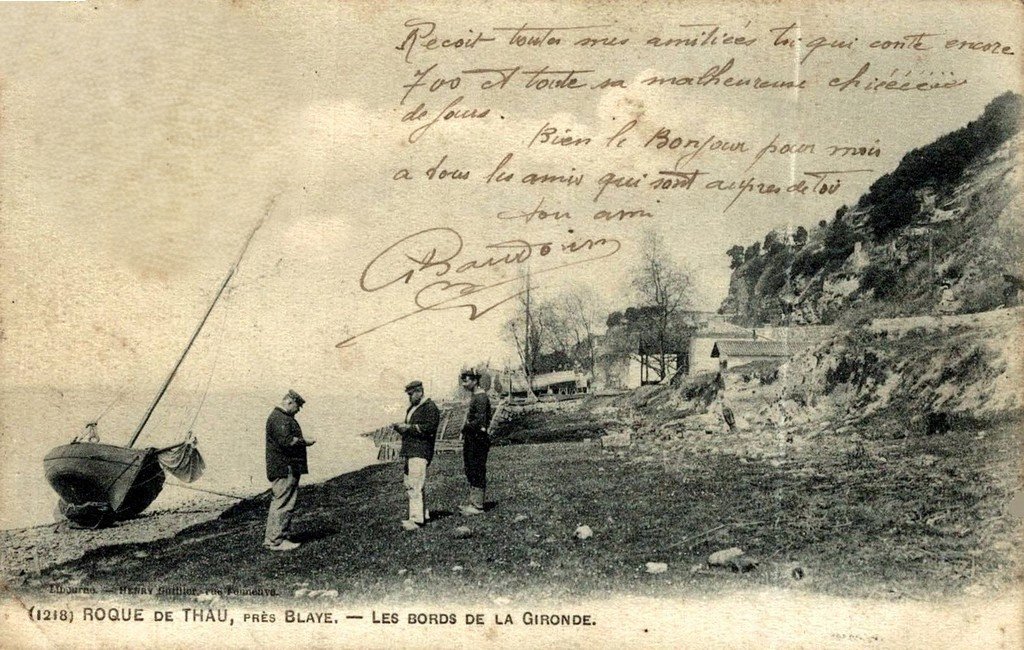 Recoit toutes mes amitiées toi qui conte encore
700 et toute sa malheureuse chiéééééé
de jours.
Bien le Bonjour pour mois
a tous les amis qui sont aupres de toi
ton ami
Baudoin
Libourne. — HENRY Guillier, rue Fonneuve.
(1218) ROQUE DE THAU, PRÈS BLAYE. — LES BORDS DE LA GIRONDE.